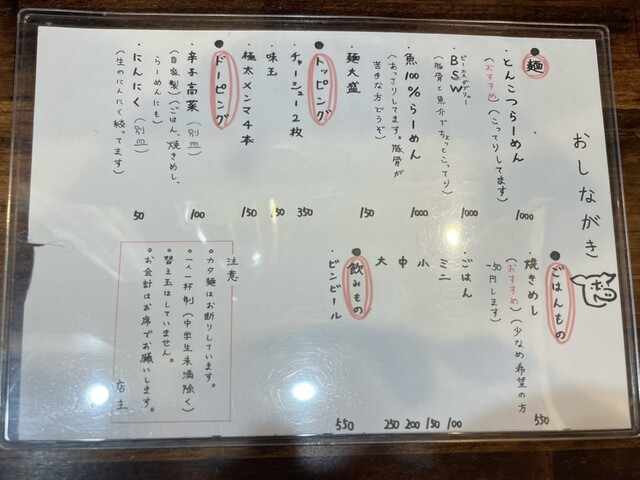 おしながき
麺
・とんこつらーめん 1000
(おすすめ)(こってりしてます)
ビーエスダブリュー
・BSW 1000
(豚骨と魚介でちょっとこってり)
・魚100%らーめん 1000
(あっさりしてます。豚骨が
苦手な方どうぞ)
・麺大盛 150
トッピング
・チャーシュー2枚 350
・味玉
・極太メンマ4本 150
ドーピング
・辛子高菜(別皿) 100
(自家製)(ごはん、焼きめし、
らーめんにも)
・にんにく(別皿) 50
(生のにんにく絞ってます)
ごはんもの
・焼きめし 550
(おすすめ)(少なめ希望の方
-50円します)
・ごはん
ミニ 100
小 150
中 200
大 250
飲みもの
・ビンビール 550
注意
。カタ麺はお断りしています。
。一人一杯制(中学生未満除く)
。替え玉はしていません。
。お会計はお席でお願いします。
店主